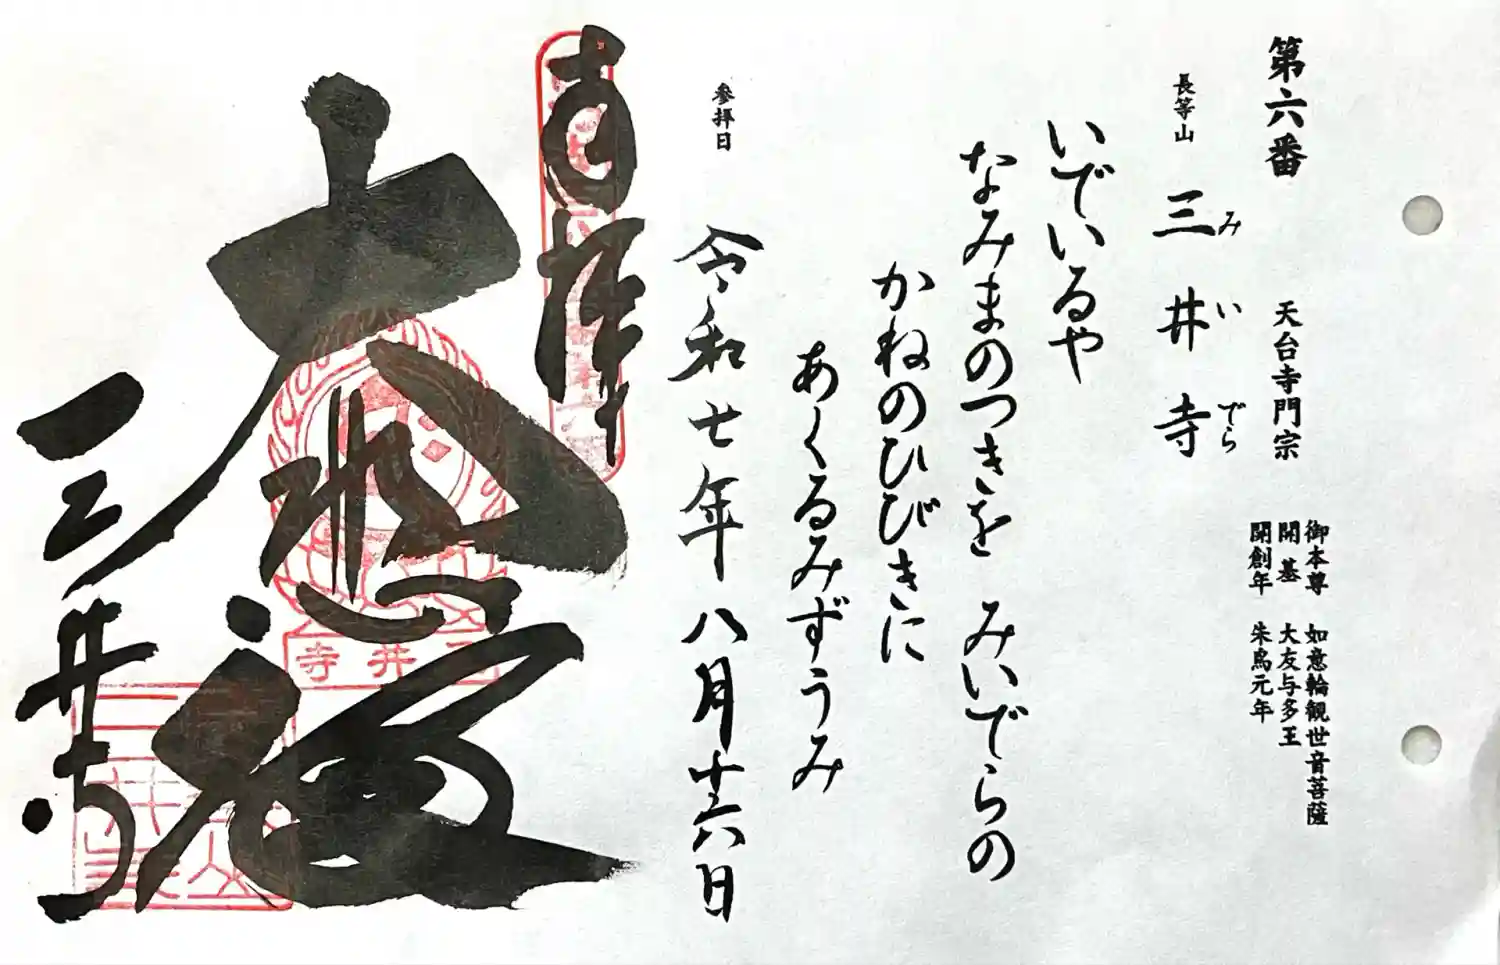 第六番　天台寺門宗
御本尊　如意輪観世音菩薩
開基　大友与多王
開創年　朱鳥元年
長等山　三井寺
みいでら
いでいるや
なみまのつきを　みいでらの
かねのひびきに
あくるみずうみ
参拝日
令和七年八月十六日
奉拝
大悲殿
三井寺
三井寺